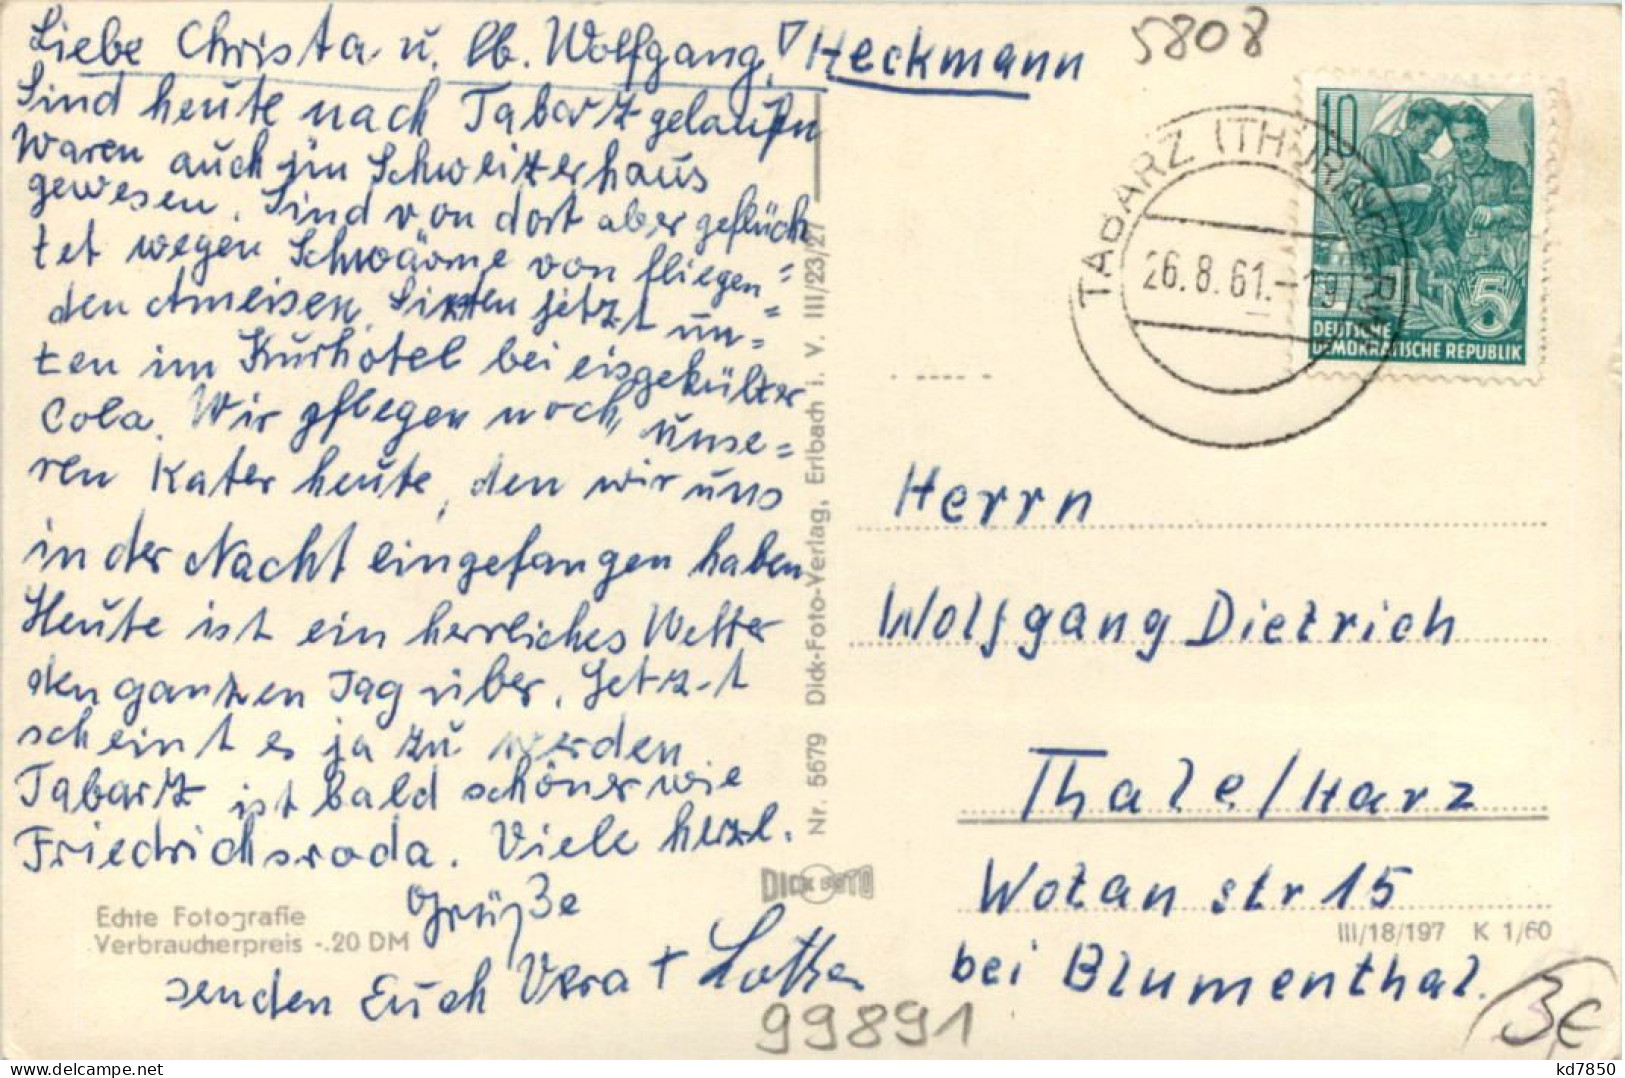 Liebe Christa u. lb. Wolfgang! Heckmann
Sind heute nach Tabarz gelaufen
Waren auch im Schweizerhaus
gewesen. Sind von dort aber geflüch
tet wegen Schwärme von fliegen=
den Ameisen. Sitzen jetzt un=
ten im Kurhotel bei eisgekülter
Cola. Wir pflegen noch unse=
ren Kater heute, den wir uns
in der Nacht eingefangen haben
Heute ist ein herrliches Wetter
den ganzen Tag über. Jetzt
scheint es ja zu werden
Tabarz ist bald schöner wie
Friedrichsroda. Viele herzl.
Grüße
senden Euch Vera + Lothar
Echte Fotografie
Verbraucherpreis -.20 DM
Nr. 5679 Dick-Foto-Verlag, Erlbach i. V. III/23/27
DICK FOTO
5808
TABARZ (THÜR
26.8.61.-19
10
5
DEUTSCHE
DEMOKRATISCHE REPUBLIK
Herrn
Wolfgang Dietrich
Thale/Harz
Wotanstr 15
III/18/197 K 1/60
bei Blumenthal.
99891
3€
kd7850